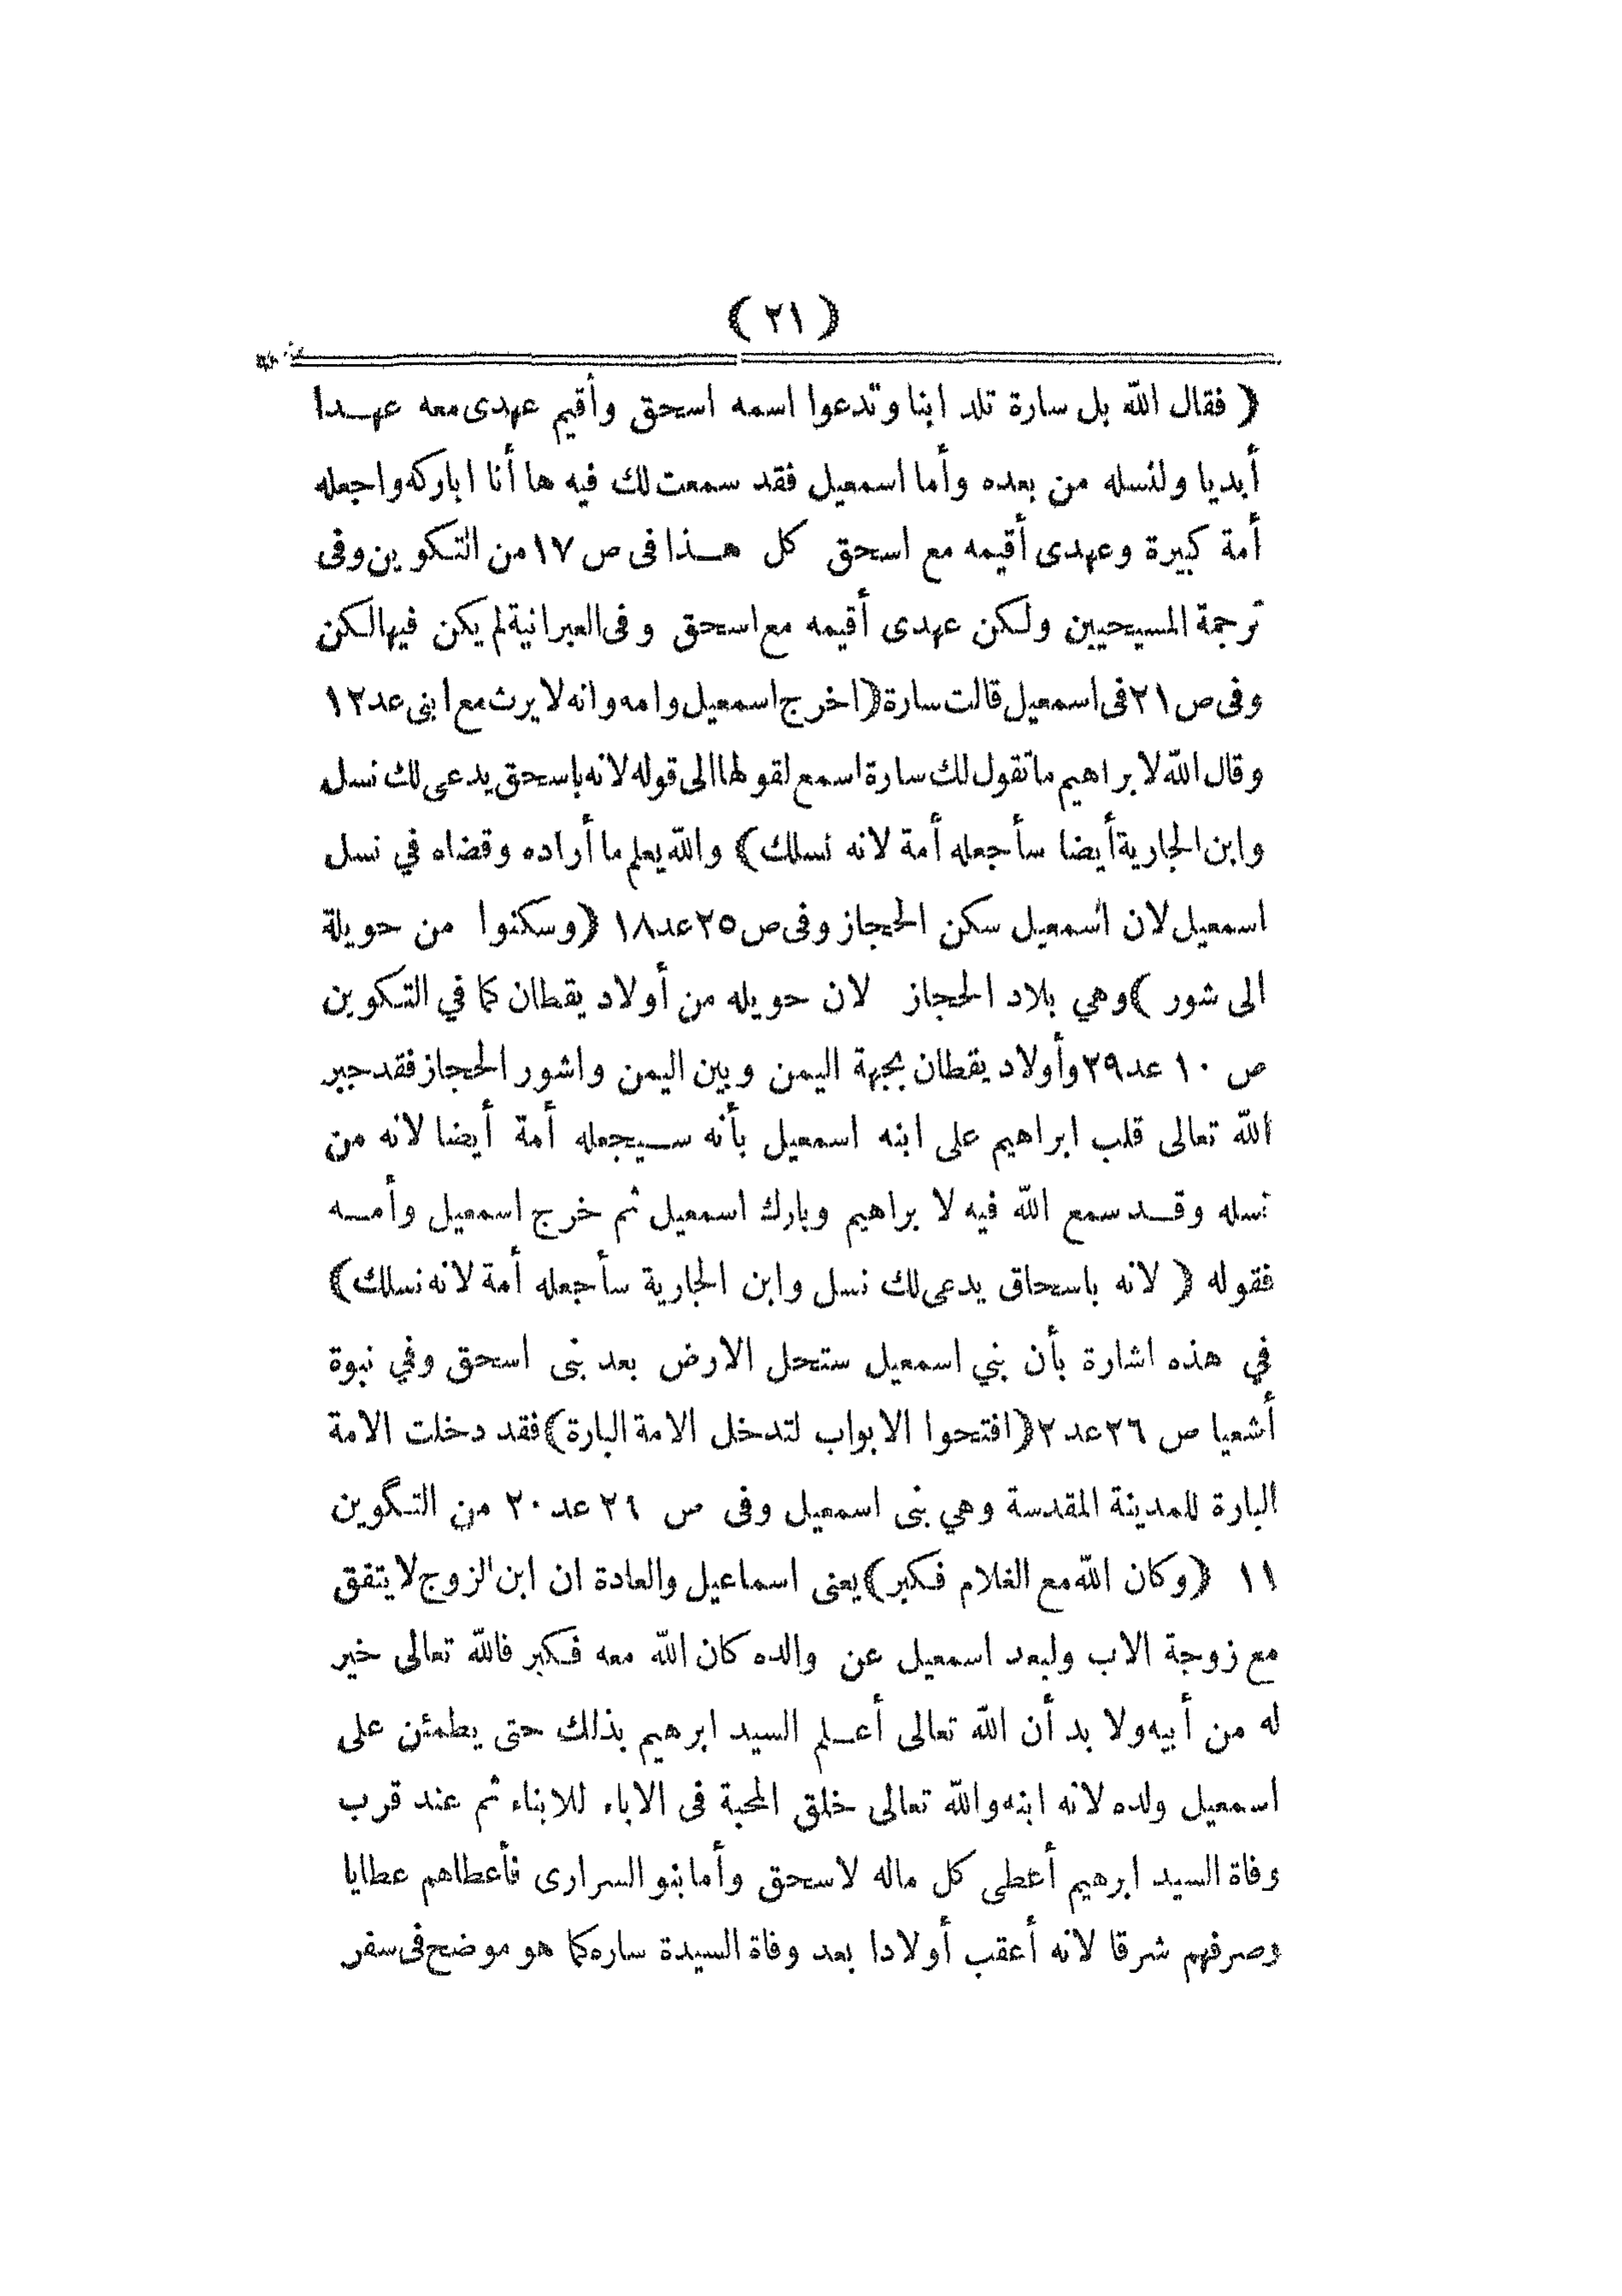 ( ٢١ )
( فقال الله بل سارة تلد ابنا وتدعوا اسمه اسحق وأقيم عهدى معه عهدا
أبديا ولنسله من بعده وأما اسمعيل فقد سمعت لك فيه ها أنا اباركه واجعله
أمة كبيرة وعهدى أقيمه مع اسحق كل هذا فى ص ١٧ من التكوين وفى
ترجمة المسيحيين ولكن عهدى أقيمه مع اسحق وفى العبرانية لم يكن فيها لكن
وفى ص ٢١ فى اسمعيل قالت سارة (اخرج اسمعيل وامه وانه لا يرث مع ابنى عد ١٢
وقال الله لابراهيم ما تقول لك سارة اسمع لقولها الى قوله لانه باسحق يدعى لك نسل
وابن الجارية أيضا سأجعله أمة لانه نسلك) والله يعلم ما أراده وقضاه في نسل
اسمعيل لان اسمعيل سكن الحجاز وفى ص ٢٥ عد ١٨ (وسكنوا من حويلة
الى شور) وهي بلاد الحجاز لان حويله من أولاد يقطان كما في التكوين
ص ١٠ عد ٢٩ وأولاد يقطان بجهة اليمن وبين اليمن واشور الحجاز فقد جبر
الله تعالى قلب ابراهيم على ابنه اسمعيل بأنه سيجعله أمة أيضا لانه من
نسله وقد سمع الله فيه لابراهيم وبارك اسمعيل ثم خرج اسمعيل وأمه
فقوله ( لانه باسحاق يدعى لك نسل وابن الجارية سأجعله أمة لانه نسلك)
في هذه اشارة بأن بني اسمعيل ستحل الارض بعد بنى اسحق وفي نبوة
أشعيا ص ٢٦ عد ٢ (افتحوا الابواب لتدخل الامة البارة) فقد دخلت الامة
البارة للمدينة المقدسة وهي بنى اسمعيل وفى ص ٢١ عد ٢٠ من التكوين
١١ (وكان الله مع الغلام فكبر) يعنى اسماعيل والعادة ان ابن الزوج لا يتفق
مع زوجة الاب ولبعد اسمعيل عن والده كان الله معه فكبر فالله تعالى خير
له من أبيه ولا بد أن الله تعالى أعلم السيد ابرهيم بذلك حتى يطمئن على
اسمعيل ولده لانه ابنه والله تعالى خلق المحبة فى الاباء للابناء ثم عند قرب
وفاة السيد ابرهيم أعطى كل ماله لاسحق وأما بنو السرارى فأعطاهم عطايا
وصرفهم شرقا لانه أعقب أولادا بعد وفاة السيدة ساره كما هو موضح فى سفر